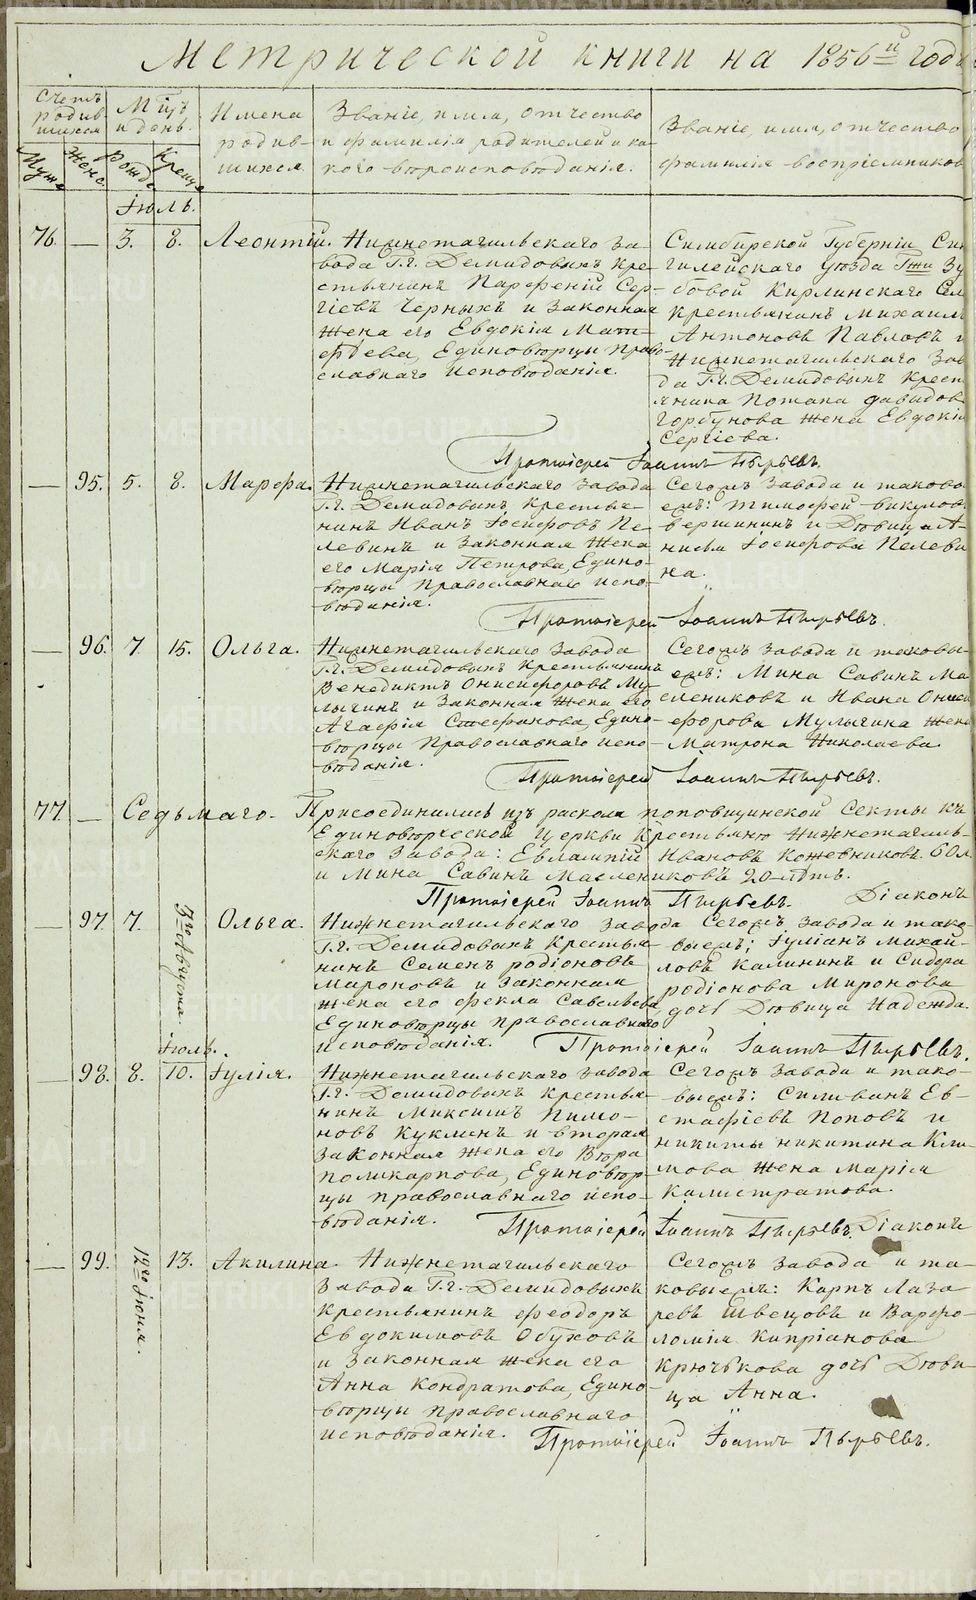 Метрической книги на 1856й годъ
Счетъ родив-шихся
Мцъ и день.
Имена родив-шихся
Званіе, имя, отчество и фамилія родителей и ка-кого вѣроисповѣданія.
Званіе, имя, отчество
фамилія воспріемников
Муже Женс Рожд Креще
Іюль.
76. — 3. 8. Леонтій.
Нижнетагильскаго за-
вода Г.г. Демидовыхъ кре-
стьянинъ Парфеній Сер-
гіевъ Черныхъ и законная
жена его Евдокія Мат-
фѣева, Единовѣрцы Право-
славнаго исповѣданія.
Симбирской Губерніи Си
гилейскаго уѣзда Гжи Зу
бовой Кирлинскаго Сел
крестьянинъ Михаил
Антоновъ Павловъ и
Нижнетагильскаго Зав
да Г.г. Демидовыхъ крест
янина Потапа Давидов
Горбунова жена Евдокія
Сергіева.
Протоіерей Іоаннъ Пырьевъ.
— 95. 5. 8. Марфа.
Нижнетагильскаго завода
Г.г. Демидовыхъ крестья-
нинъ Иванъ Іосифовъ Пе-
левинъ и законная жена
его Марія Петрова, Едино-
вѣрцы Православнаго испо-
вѣданія.
Сегожъ завода и таково
ежъ: Тимофей Викулов
Вершининъ и Дѣвица А-
нисья Іосифова Пелеви
на.
Протоіерей Іоаннъ Пырьевъ.
— 96. 7. 15. Ольга.
Нижнетагильскаго завода
Г.г. Демидовыхъ крестьянинъ
Венедиктъ Онисифоровъ Му-
лычинъ и законная жена его
Агафія Стефанова, Едино-
вѣрцы Православнаго испо-
вѣданія.
Сегожъ завода и таковы-
ежъ: Мина Савинъ Ма
слениковъ и Ивана Ониси
форова Мулычина жена
Матрона Николаева.
Протоіерей Іоаннъ Пырьевъ.
77. — Седьмаго. Присоединились изъ раскола поповщинской секты къ
Единовѣрческой церкви крестьяне Нижнетагиль-
скаго завода: Евлампій Ивановъ Кожевниковъ 60 л.
и Мина Савинъ Маслениковъ 20 лѣтъ.
Протоіерей Іоаннъ Пырьевъ. Діаконъ
— 97. 7. 3го Августа Ольга.
Нижнетагильскаго завода
Г.г. Демидовыхъ крестья-
нинъ Семенъ родіоновъ
Мироновъ и законная
жена его Фекла Савельева
Единовѣрцы православнаго
исповѣданія.
Сегожъ завода и тако-
выежъ; Іуліанъ Михай-
ловъ Калининъ и Сидора
родіонова Миронова
дочь Дѣвица Надежда.
Протоіерей Іоаннъ Пырьевъ.
Іюль.
— 98. 8. 10. Іулія.
Нижнетагильскаго завода
Г.г. Демидовыхъ крестья-
нинъ Максимъ Пимо-
новъ Куклинъ и вторая
законная жена его Вѣра
поликарпова, Единовѣр-
цы православнаго испо-
вѣданія.
Сегожъ завода и тако-
выежъ: Силиванъ Ев-
стафіевъ Поповъ и
никиты никитина Кли-
мова жена Марія
Калистратова.
Протоіерей Іоаннъ Пырьевъ. Діаконъ
— 99. 12го Іюня. 13. Акилина.
Нижнетагильскаго
завода Г.г. Демидовыхъ
крестьянинъ Феодоръ
Евдокимовъ Обуховъ
и законная жена его
Анна Кондратова, Едино-
вѣрцы православнаго
исповѣданія.
Сегожъ завода и та-
ковыежъ: Карпъ Лаза-
ревъ Швецовъ и Варфо-
ломія Кипріанова
Крючькова дочь Дѣви-
ца Анна.
Протоіерей Іоаннъ Пырьевъ.
METRIKI.SASD-URAL.RU